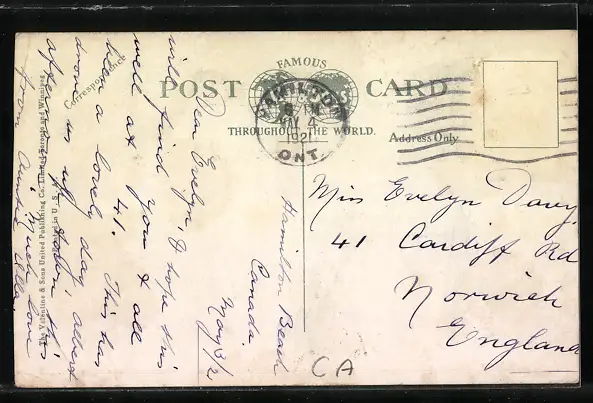 FAMOUS
POST CARD
THROUGHOUT THE WORLD.
Correspondence
Address Only
HAMILTON
MY 4
1921
ONT.
The Valentine & Sons United Publishing Co., Limited, Toronto and Winnipeg
Printed in
Hamilton Beach
Canada
May 3/21
Dear Evelyn, I hope this
will find you & all
well at 41. This has
been a lovely day, Albert
drove us up town this
afternoon
from Auntie Ella.
Miss Evelyn Davy
41 Cardiff Rd
Norwich
England
CA